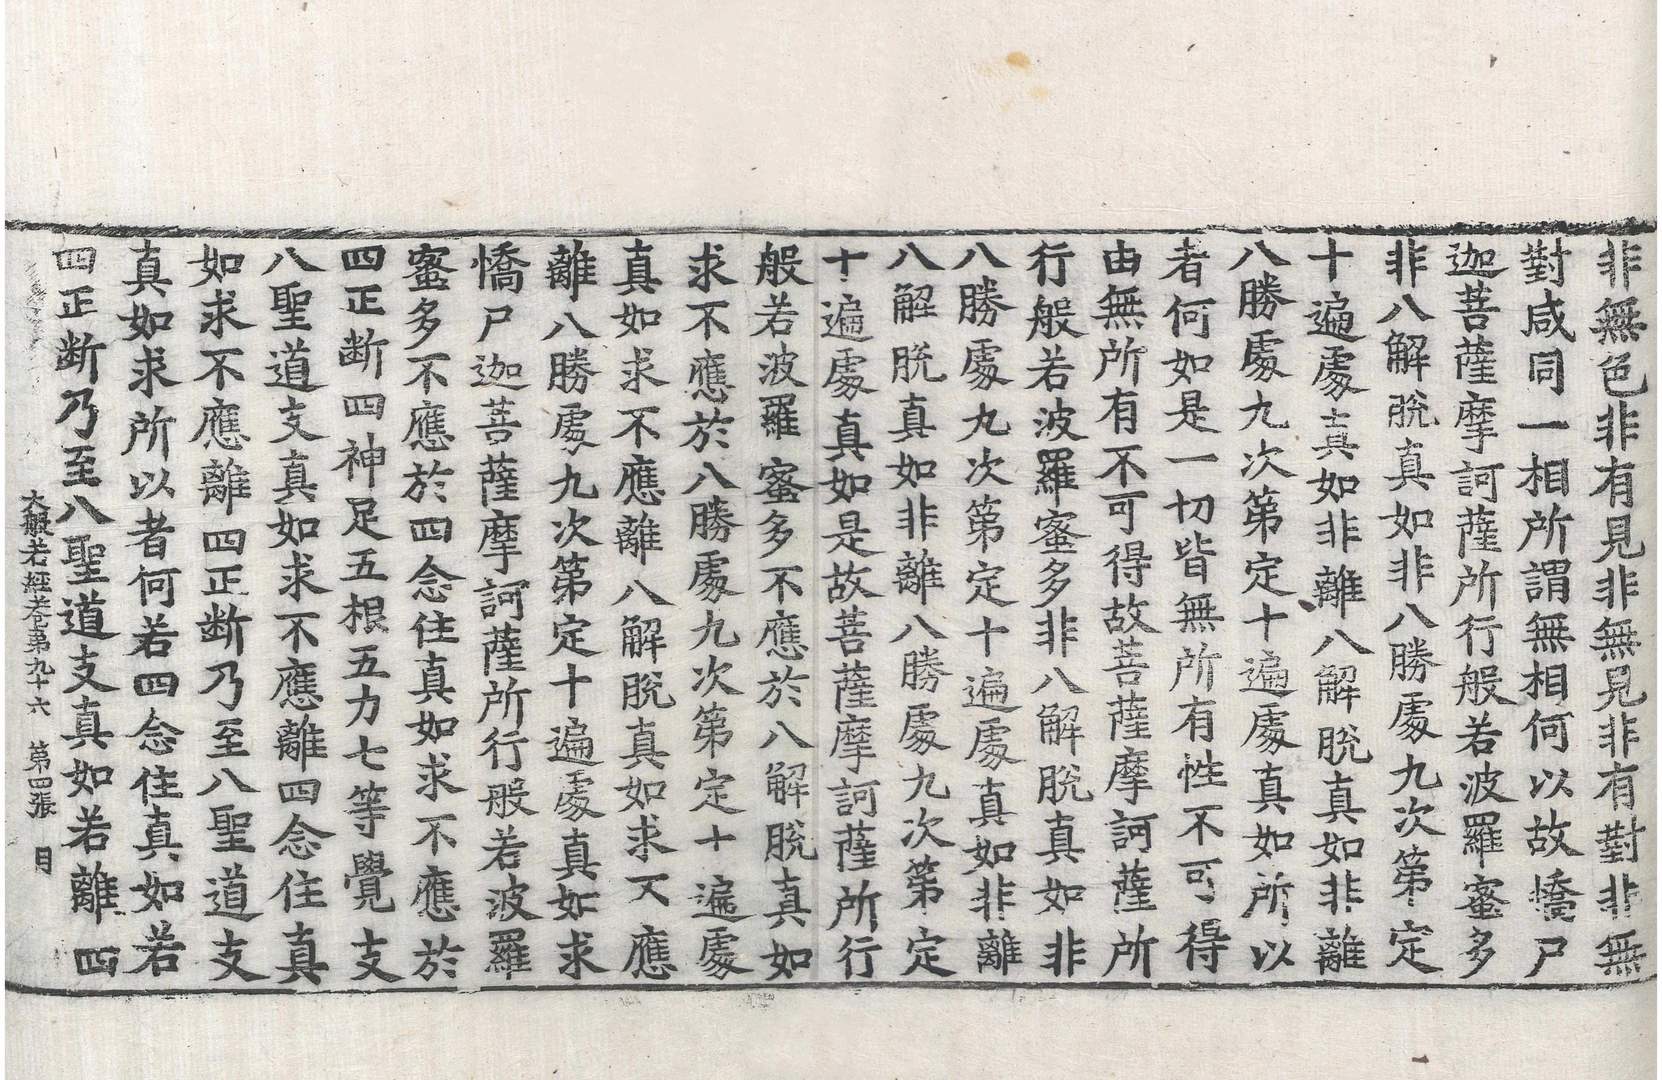 非無色非有見非無見非有對非無
對咸同一相所謂無相何以故憍尸
迦菩薩摩訶薩所行般若波羅蜜多
非八解脫真如非八勝處九次第定
十遍處真如非離八解脫真如非離
八勝處九次第定十遍處真如所以
者何如是一切皆無所有性不可得
由無所有不可得故菩薩摩訶薩所
行般若波羅蜜多非八解脫真如非
八勝處九次第定十遍處真如非離
八解脫真如非離八勝處九次第定
十遍處真如是故菩薩摩訶薩所行
般若波羅蜜多不應於八解脫真如
求不應於八勝處九次第定十遍處
真如求不應離八解脫真如求不應
離八勝處九次第定十遍處真如求
憍尸迦菩薩摩訶薩所行般若波羅
蜜多不應於四念住真如求不應於
四正断四神足五根五力七等覺支
八聖道支真如求不應離四念住真
如求不應離四正断乃至八聖道支
真如求所以者何若四念住真如若
四正断乃至八聖道支真如若離四
大般若經卷第九十六 第四張 目